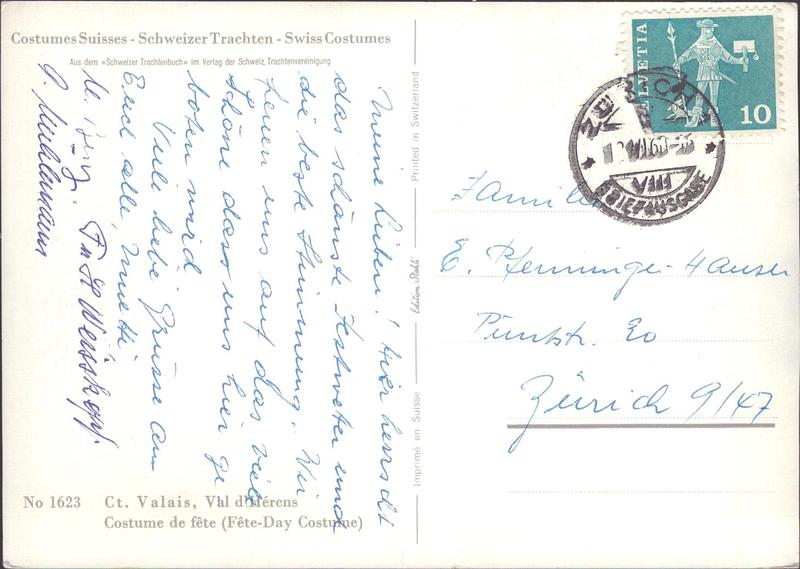 Costumes Suisses - Schweizer Trachten - Swiss Costumes
Aus dem «Schweizer Trachtenbuch» im Verlag der Schweiz. Trachtenvereinigung
Meine Lieben! Hier herrscht
das schönste Festwetter und
die beste Stimmung. Wir
freuen uns auf das viele
Schöne dass uns hier ge-
boten wird
Viele liebe Grüsse an
Euch alle,
Fr. H. Weisskopf.
No 1623 Ct. Valais, Val d'Hérens
Costume de fête (Fête-Day Costume)
Printed in Switzerland
Edition Stehli
Imprimé en Suisse
HELVETIA
10
ZÜRICH
BRIEFAUSGABE
Familie
E. Pfenninger-Hauser
Zürich 9/47